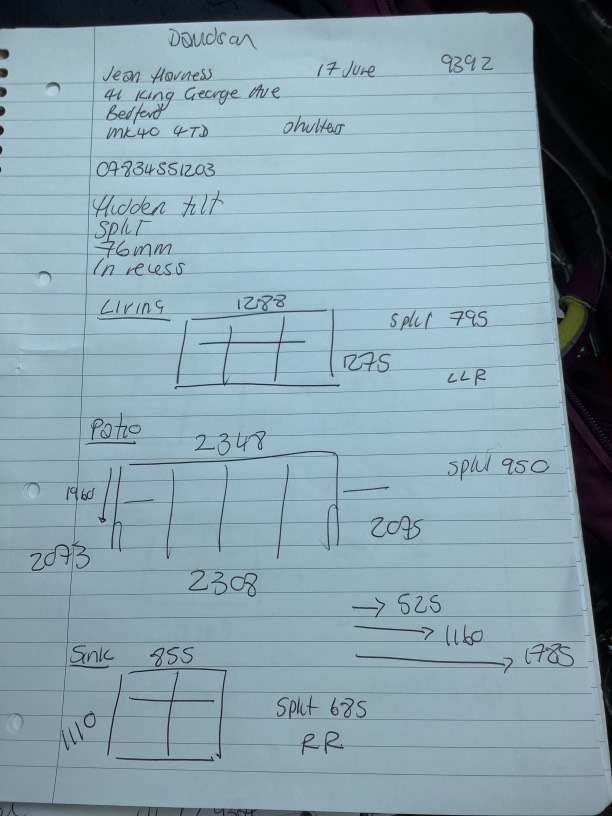 Davidson
Jean Harness 17 June 9392
41 King George Ave
Bedford
MK40 4TD shutters
07834551203
Hidden tilt
Split
76mm
In recess
Living 1288
Split 795
1275
LLR
Patio
2348
Split 950
1960
2095
2073
2308
525
1160
1785
Sink 855
Split 685
1110
RR